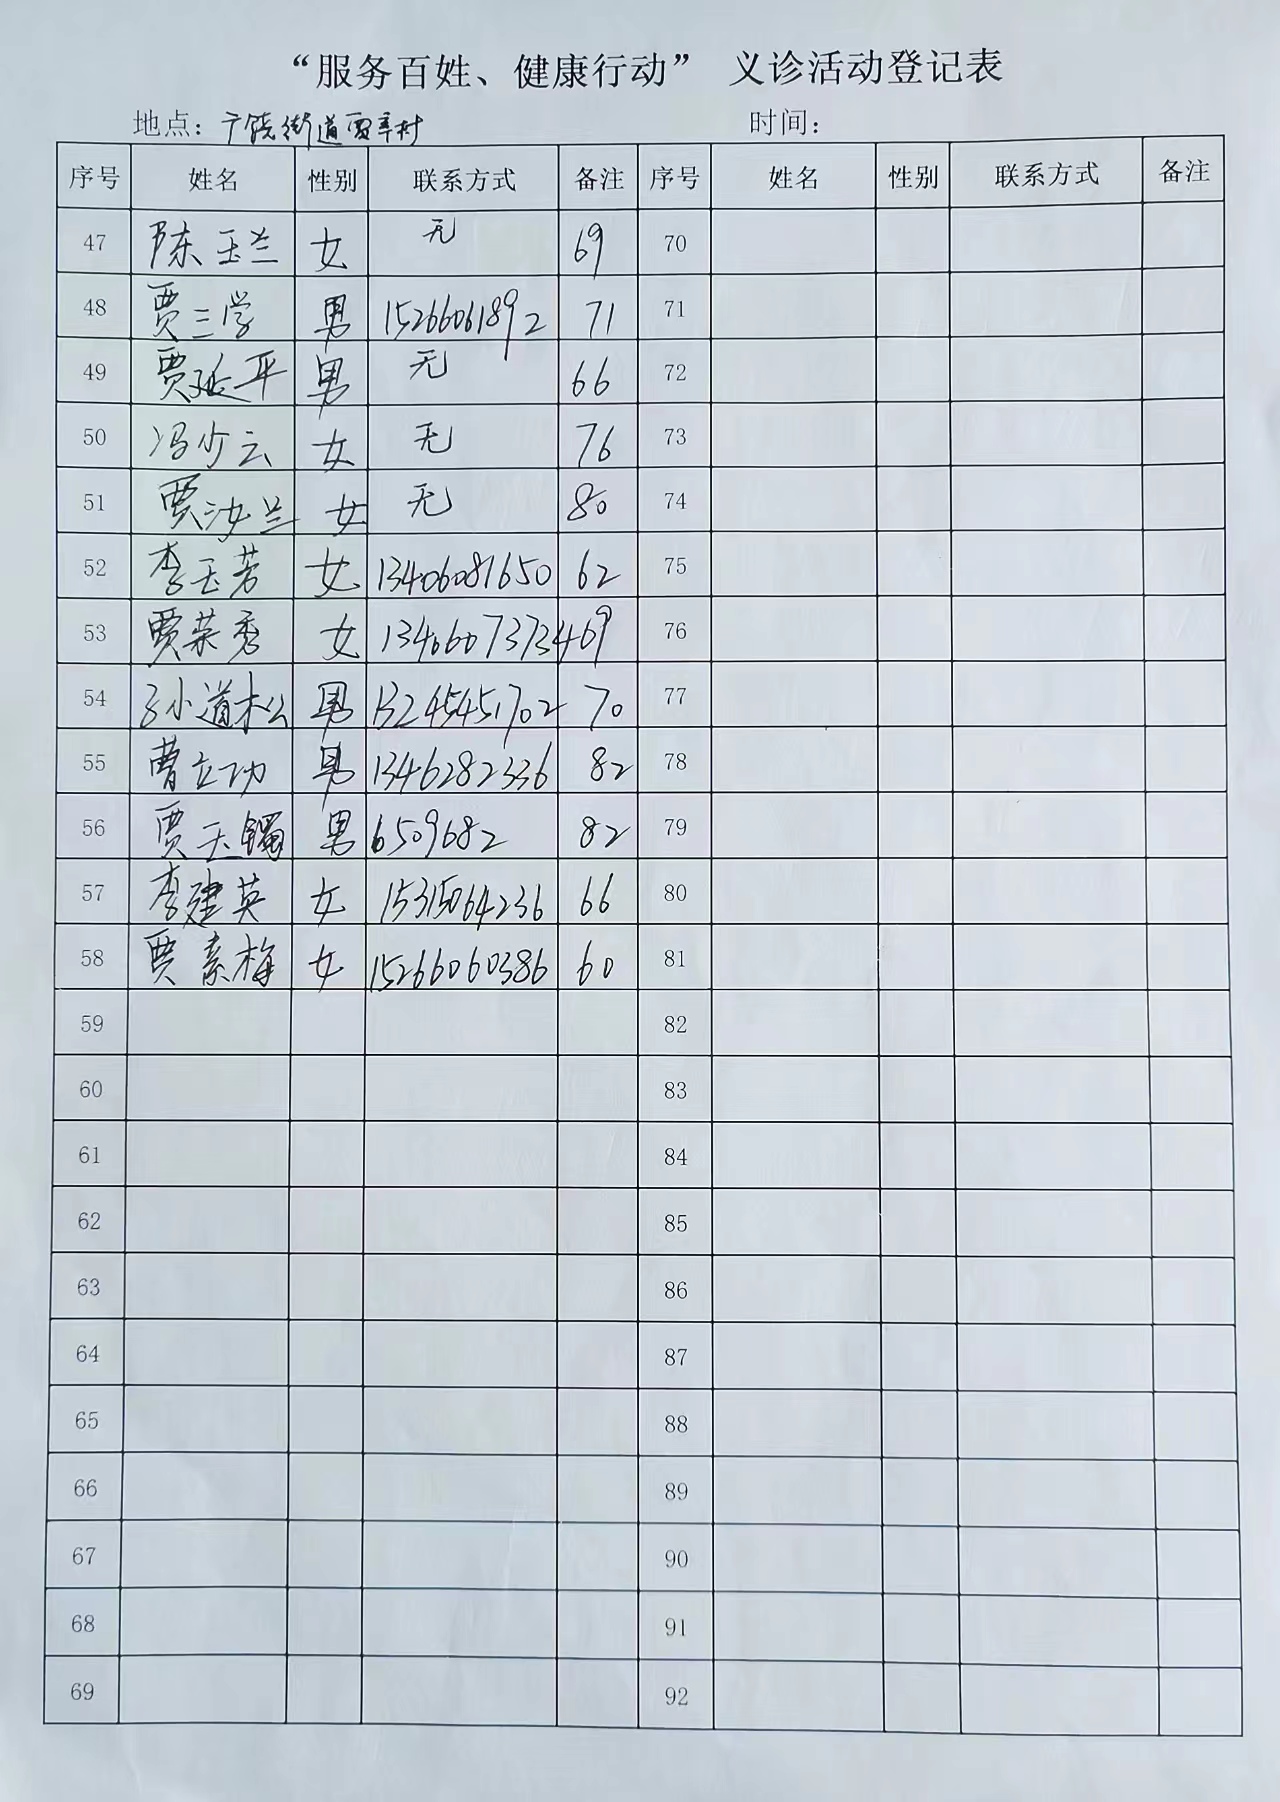 “服务百姓、健康行动” 义诊活动登记表
地点：广饶街道贾辛村 时间：
序号 姓名 性别 联系方式 备注 序号 姓名 性别 联系方式 备注
47 陈玉兰 女 无 69 70
48 贾三学 男 15266061892 71 71
49 贾延平 男 无 66 72
50 冯少云 女 无 76 73
51 贾汝兰 女 无 80 74
52 李玉芳 女 13406081650 62 75
53 贾荣秀 女 13406073734 69 76
54 孙道松 男 13245451702 70 77
55 曹立功 男 1346282336 82 78
56 贾玉镯 男 6509682 82 79
57 李建英 女 15315064236 66 80
58 贾素梅 女 15266060386 60 81
59 82
60 83
61 84
62 85
63 86
64 87
65 88
66 89
67 90
68 91
69 92